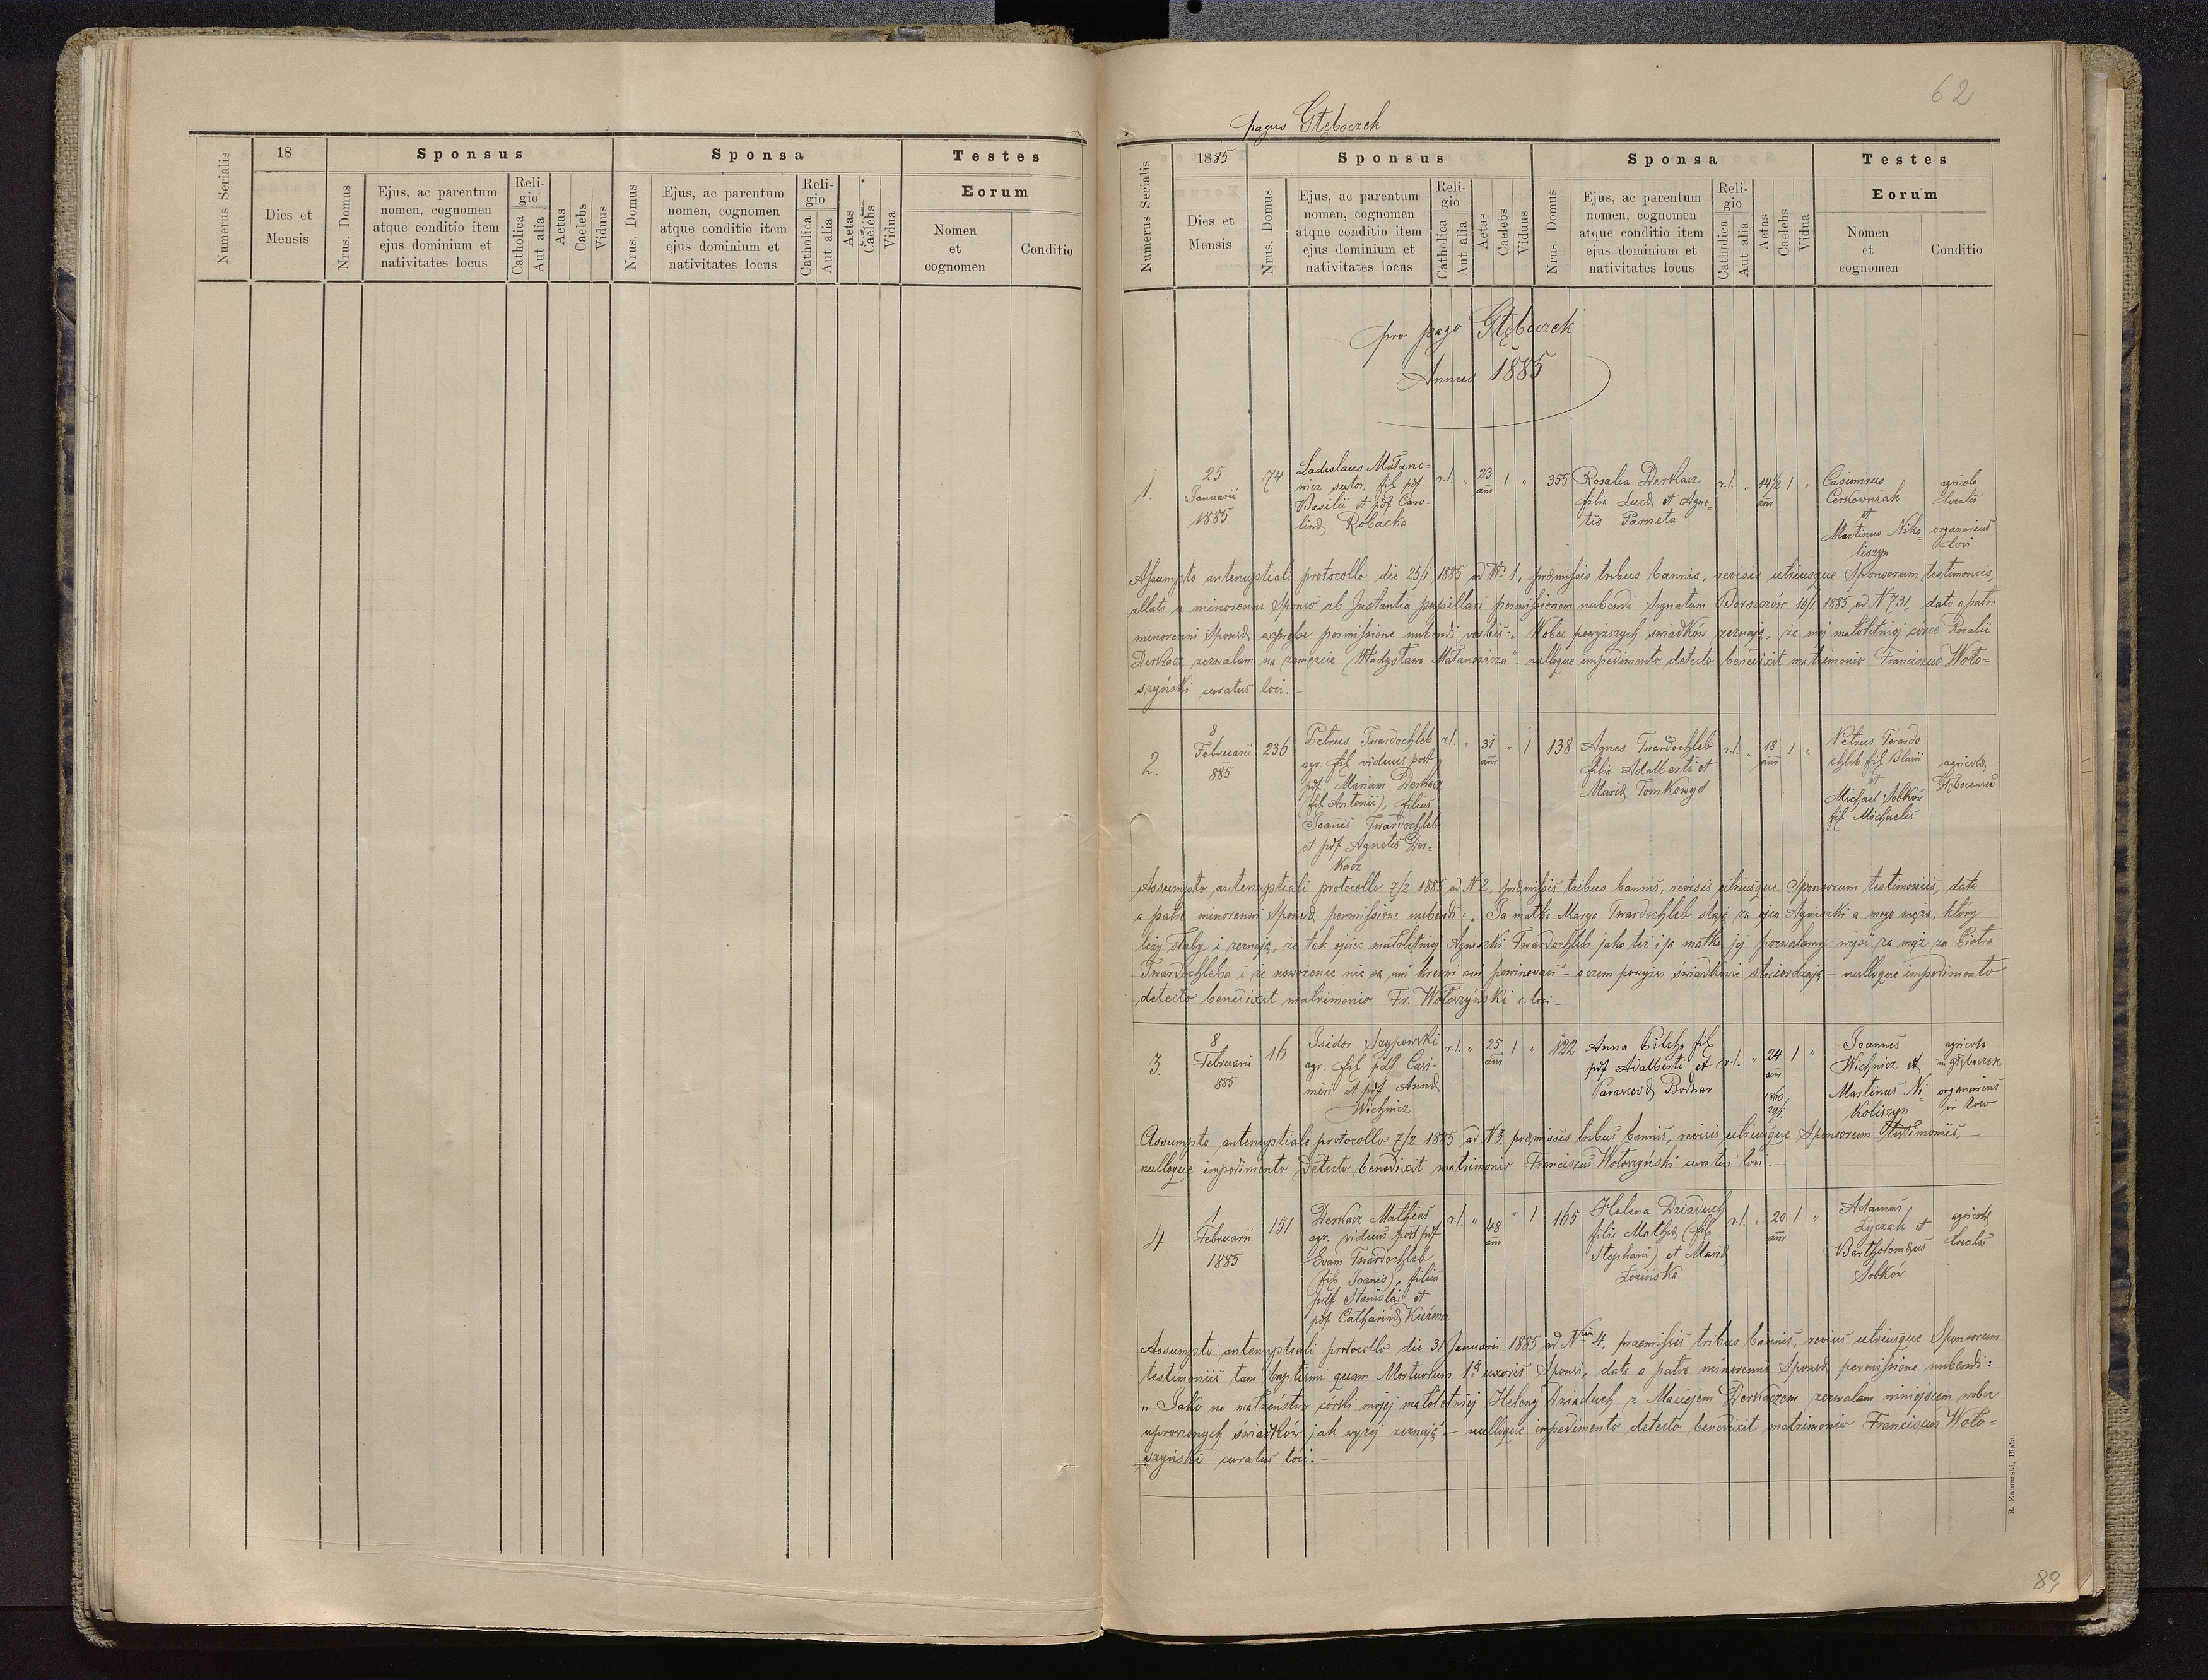 Numerus Serialis
18
Dies et
Mensis
Sponsus
Nrus. Domus
Ejus, ac parentum
nomen, cognomen
atque conditio item
ejus dominium et
nativitates locus
Reli-
gio
Catholica
Aut alia
Aetas
Caelebs
Viduus
Sponsa
Nrus. Domus
Ejus, ac parentum
nomen, cognomen
atque conditio item
ejus dominium et
nativitates locus
Reli-
gio
Catholica
Aut alia
Aetas
Caelebs
Vidua
Testes
Eorum
Nomen
et
cognomen
Conditio
62
pagus Głęboczek
Numerus Serialis
1885
Dies et
Mensis
Sponsus
Nrus. Domus
Ejus, ac parentum
nomen, cognomen
atque conditio item
ejus dominium et
nativitates locus
Reli-
gio
Catholica
Aut alia
Aetas
Caelebs
Viduus
Sponsa
Nrus. Domus
Ejus, ac parentum
nomen, cognomen
atque conditio item
ejus dominium et
nativitates locus
Reli-
gio
Catholica
Aut alia
Aetas
Caelebs
Vidua
Testes
Eorum
Nomen
et
cognomen
Conditio
pro pago Głęboczek
Annus 1885
1.
25
Januarii
1885
74
Ladislaus Małano=
wicz sutor, fil. pdf.
Basilii et pdf Caro-
linæ Robacka
r.l. " 23 ann. 1 "
355
Rosalia Derkacz
filia Lucæ et Agne-
tis Parneta
r.l. " 14½ ann 1 "
Casimirus
Cerkowniak
et
Martinus Niko=
liszyn
agricola
localis
organarius
loci
Assumpto antenuptiali protocollo die 25/1 1885 ad Nr. 1, præmissis tribus bannis, revisis utriusque Sponsorum testimoniis,
allata a minorenni Sponso ab Instantia pupillari permissionem nubendi signatam Borszczów 10/1 1885 ad N 731, data a patre
minorenni Sponsæ expresse permissione nubendi verbis: "Wobec powyższych świadków zeznaję, że mej małoletniej córce Rozalii
Derkacz zezwalam na zamęzcie Władysława Małanowicza" – nulloque impedimento detecto benedixit matrimonio Franciscus Woło=
szyński curatus loci. –
2.
8
Februarii
885
236
Petrus Twardochleb
agr. fil. viduus post
pdf. Mariam Derkacz
(fil Antonii), filius
Joannis Twardochleb
et pdf Agnetis Der-
kacz
r.l. " 31 ann. " 1
138
Agnes Twardochleb
filia Adalberti et
Mariæ Tomkowyd
r.l. " 18 ann 1 "
Petrus Twardo
chleb fil Blasii
et
Michael Sobków
fil Michaelis
agricolæ
Głęboczenses
Assumpto antenuptiali protocollo 7/2 1885 ad N 2, præmissis tribus bannis, revisis utriusque Sponsorum testimoniis, data
a patre minorenni Sponsæ permissione nubendi: "Ja matka Marya Twardochleb staję za ojca Agnieszki a mego męża, który
leży słaby i zeznaję, że tak ojciec małoletniej Agnieszki Twardochleb jako też i ja matka jej pozwalamy wyjsi za mąż za Piotra
Twardochleba i że nowożeńce nie są ani krewni ani powinowaci" – a czem powyżsi świadkowie stwierdzają – nulloque impedimento
detecto benedixit matrimonio Fr. Wołoszyński c. loci –
3.
8
Februarii
885
16
Isidor Szypowski
agr. fil pdf. Casi-
miri et pdf Annæ
Wichnicz
r.l. " 25 ann 1 "
122
Anna Pilch fil
pdf Adalberti et
Parascevæ Bodnar
r.l. " 24 ann 1 "
1860
29/1.
Joannes
Wichnicz et
Martinus Ni-
koliszyn
agricola
in Głęboczek
organarius
in loco
Assumpto antenuptiali protocollo 7/2 1885 ad N 3. præmissis tribus bannis, revisis utriusque Sponsorum testimoniis, –
nulloque impedimento detecto benedixit matrimonio Franciscus Wołoszyński curatus loci. –
4
1
Februarii
1885
151
Derkacz Mathias
agr. viduus post pdf
Evam Twardochleb
(fil Joannis), filius
pdf Stanislai et
pdf Catharinæ Kuzma
r.l. " 48 ann " 1
165
Helena Dziaduch
filia Mathiæ (fil
Stephani) et Mariæ
Łozińska
r.l. " 20 ann 1 "
Adamus
Łyczak et
Bartholomæus
Sobków
agricolæ
locales
Assumpto antenuptiali protocollo die 31 Januarii 1885 ad Nrum 4, praemissis tribus bannis, revisis utriusque Sponsorum
testimoniis tam baptismi quam Mortuorum 1æ uxoris Sponsi, data a patre minorennis Sponsæ permissione nubendi:
"Jako na małżeństwo córki mojej małoletniej Heleny Dziaduch z Maciejem Derkaczem zezwalam niniejszem wobec
uproszonych świadków jak wyżej zeznaję" – nulloque impedimento detecto benedixit matrimonio Franciscus Woło=
szyński curatus loci. –
R. Zamarski, Biała.
89